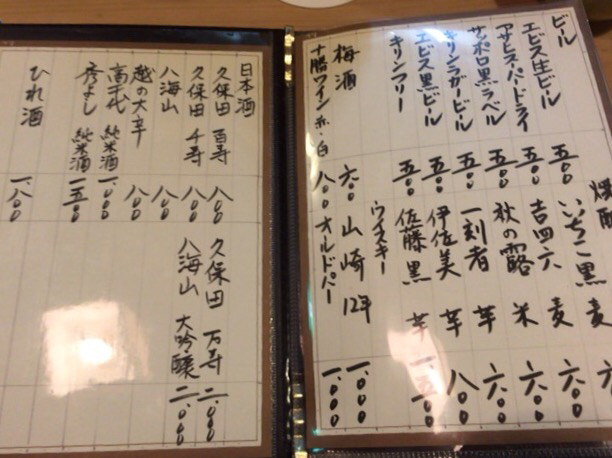 ビール
エビス生ビール 五〇〇
アサヒスーパードライ 五〇〇
サッポロ黒ラベル 五〇〇
キリンラガービール 五〇〇
エビス黒ビール 五〇〇
キリンフリー 五〇〇
梅酒 六〇〇
十勝ワイン 赤・白 八〇〇
焼酎
いいちこ黒 麦 六〇〇
吉四六 麦 六〇〇
秋の露 米 六〇〇
一刻者 芋 六〇〇
伊佐美 芋 八〇〇
佐藤黒 芋
ウイスキー
山崎 12年 一、〇〇〇
オールドパー 一、〇〇〇
日本酒
久保田 百寿 八〇〇
久保田 千寿 八〇〇
八海山 八〇〇
越の大辛 八〇〇
高千代 純米酒 一、〇〇〇
秀よし 純米酒 一、五〇〇
ひれ酒 一、八〇〇
久保田 万寿 二、〇〇〇
八海山 大吟醸 二、〇〇〇